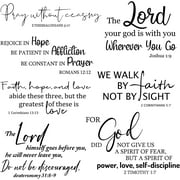 Pray without ceasing
1 THESSALONIANS 5:17
The Lord
your god is with you
Wherever You Go
Joshua 1:9
REJOICE IN Hope
BE PATIENT IN Affliction
BE CONSTANT IN Prayer
ROMANS 12:12
WE WALK
BY faith
NOT BY
SIGHT
2 CORINTHIANS 5:7
Faith, hope, and love
abide these three, but the
greatest of these is
love
1 Corinthians 13:13
The Lord
himself goes before you,
he will never leave you,
Do not be discouraged.
deuteronomy 31:8-9
FOR
God
DID
NOT GIVE US
A SPIRIT OF FEAR,
BUT A SPIRIT OF
power, love, self-discipline
2 TIMOTHY 1:7